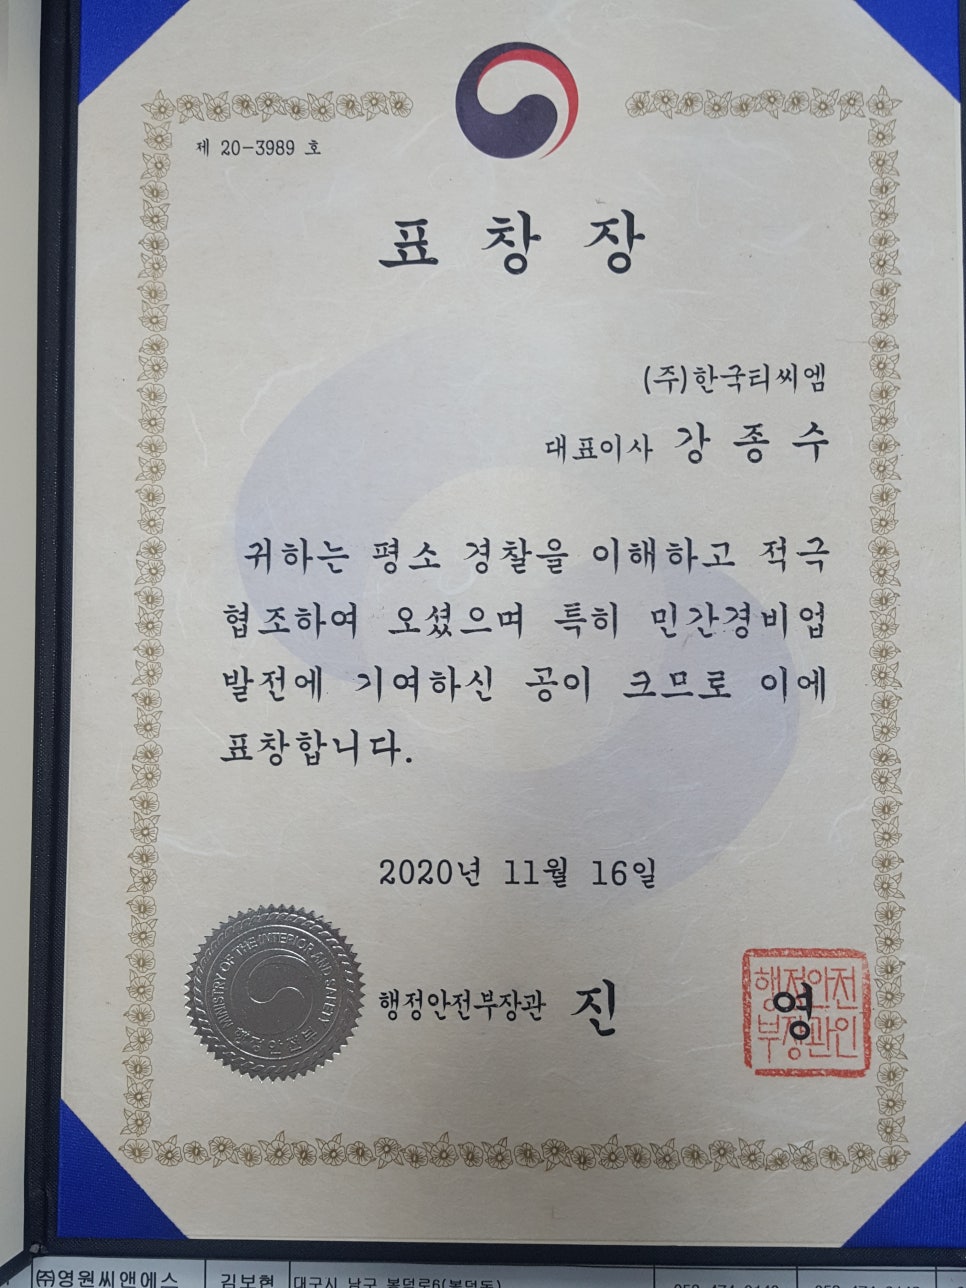 제 20-3989 호
표 창 장
(주)한국티씨엠
대표이사 강 종 수
귀하는 평소 경찰을 이해하고 적극
협조하여 오셨으며 특히 민간경비업
발전에 기여하신 공이 크므로 이에
표창합니다.
2020년 11월 16일
MINISTRY OF THE INTERIOR AND SAFETY
행정안전부장관 진 영
행정안전
부장관인
㈜영원씨앤에스 김보현 대구시 남구 봉덕로6(봉덕동)